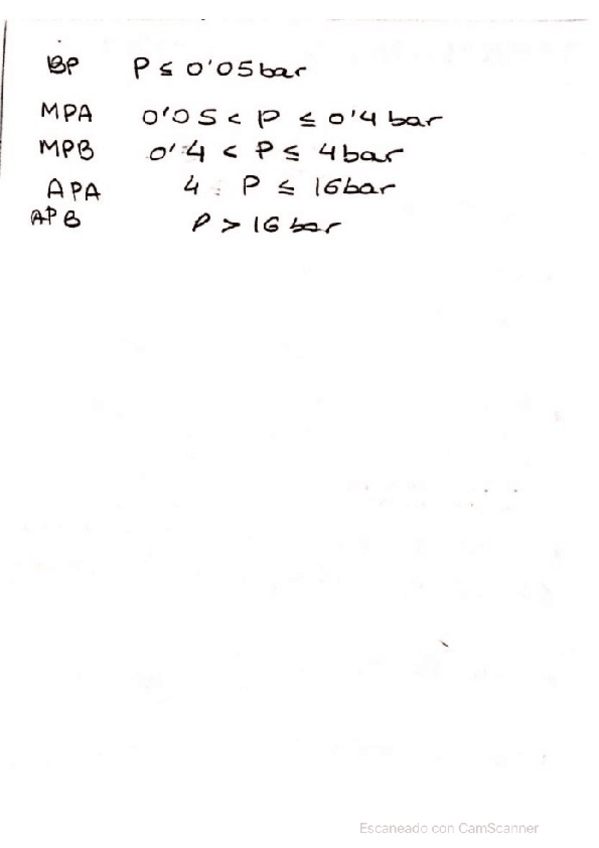 BP P ≤ 0'05 bar
MPA 0'05 < P ≤ 0'4 bar
MPB 0'4 < P ≤ 4 bar
APA 4 P ≤ 16 bar
APB P > 16 bar
Escaneado con CamScanner